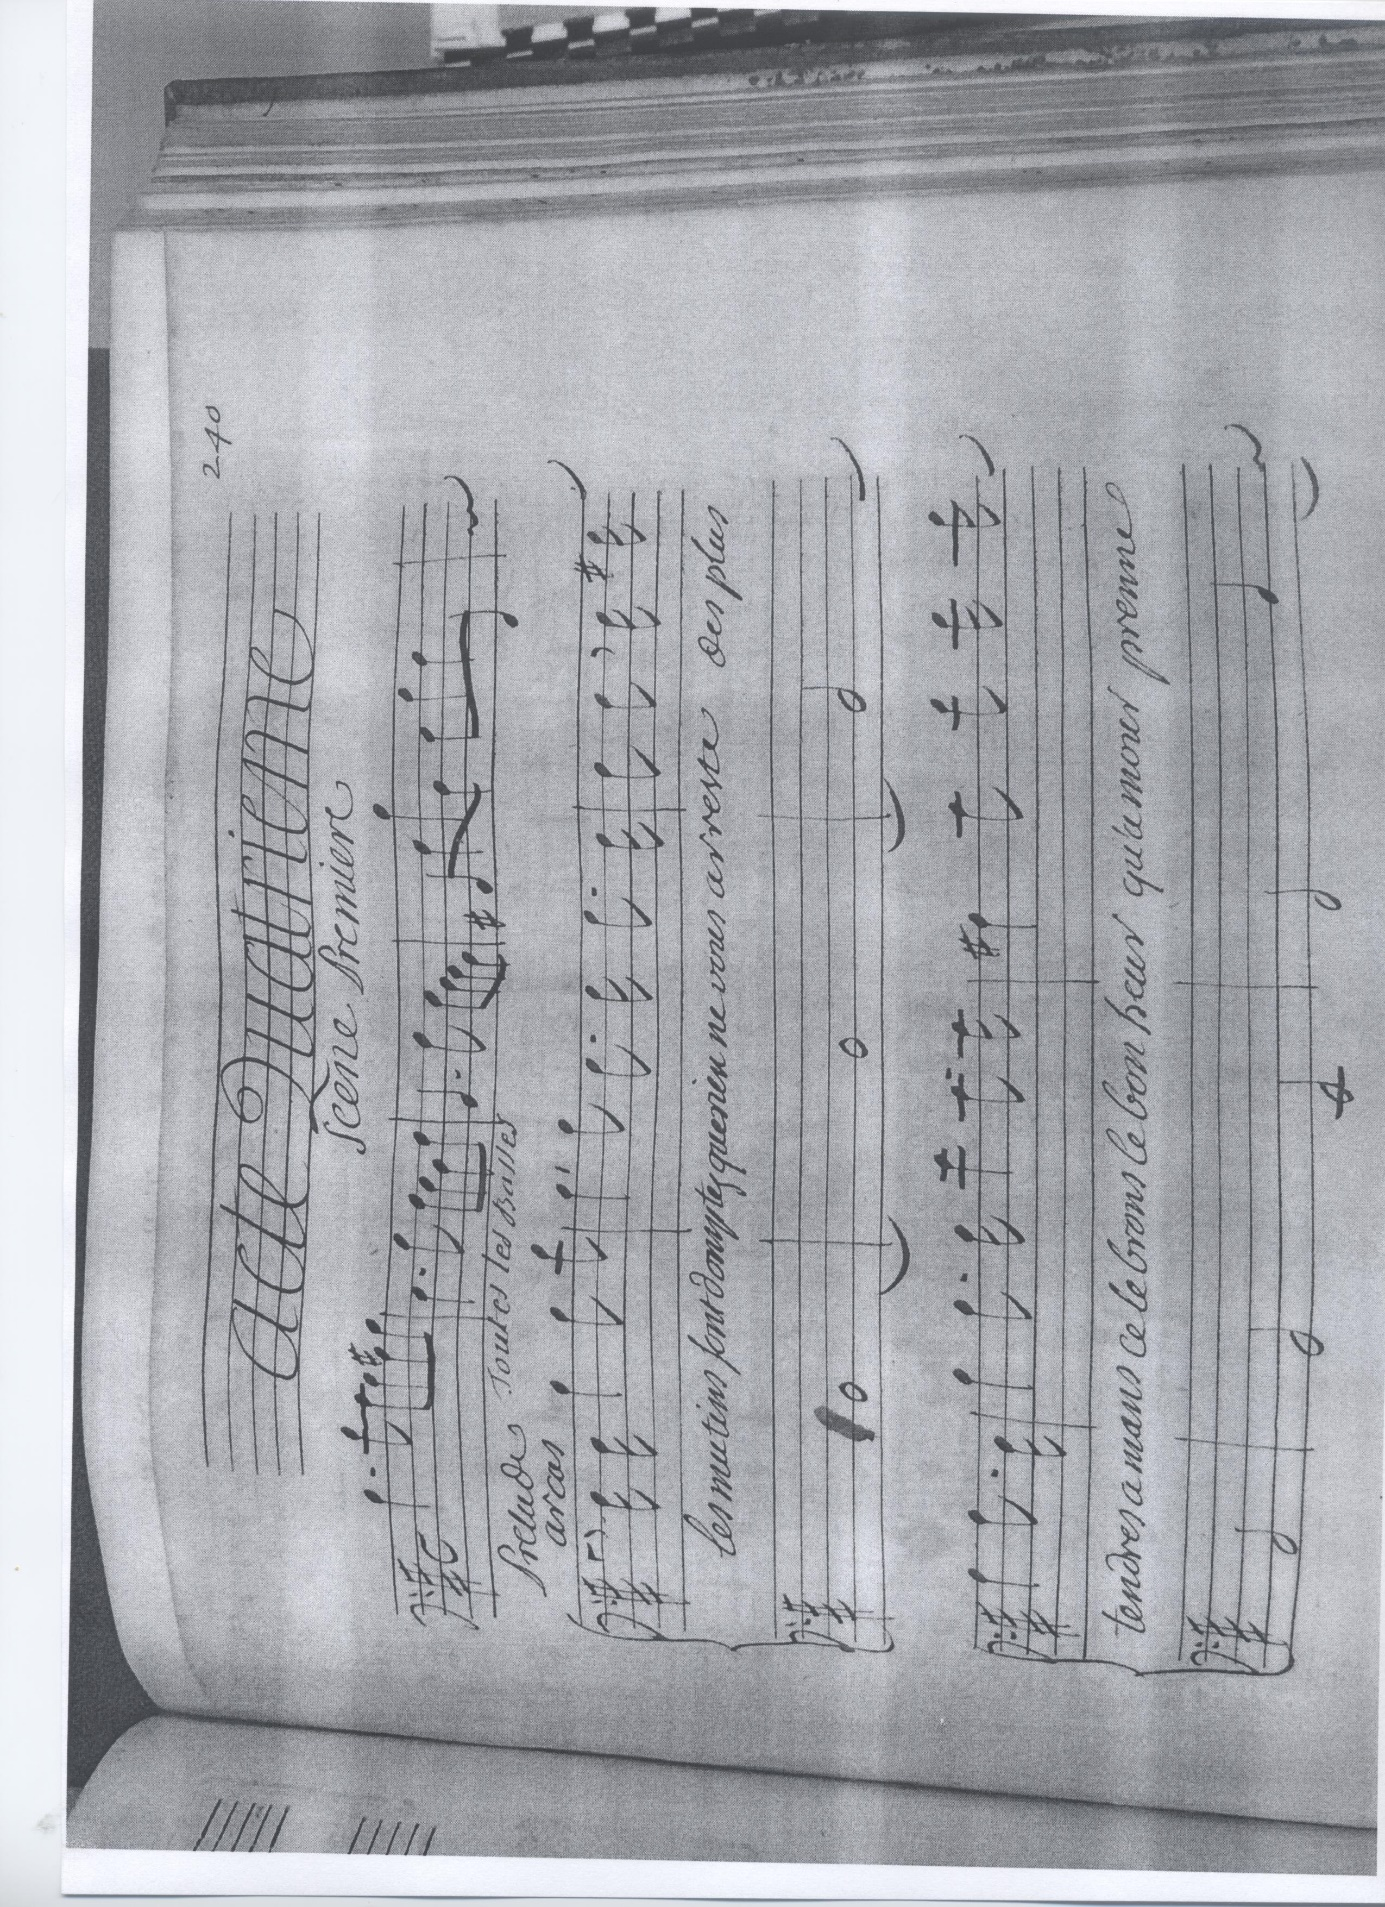 240
Acte Quatriéme
Scene Premiere
Prelude Toutes les Basses
arcas
les mutins sont domptez que rien ne vous arreste des plus
tendres amans celebrons le bon heur qu'à mour prenne